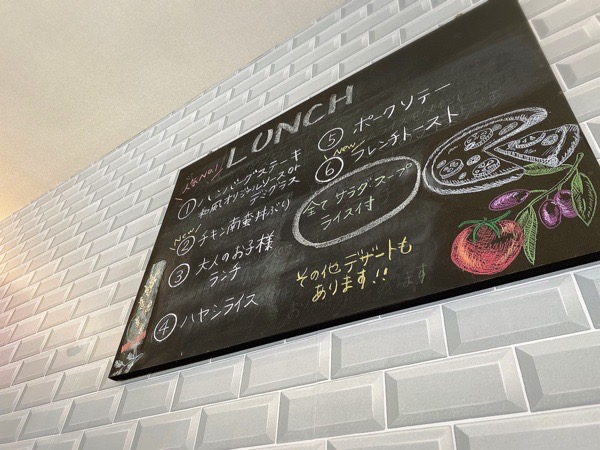 LUNCH
人気No.1
① ハンバーグステーキ
和風オリジナルソースor
デミグラス
New!
② チキン南蛮丼ぶり
③ 大人のお子様
ランチ
④ ハヤシライス
⑤ ポークソテー
New
⑥ フレンチトースト
全て サラダ・スープ
ライス付
その他 デザートも
あります!!